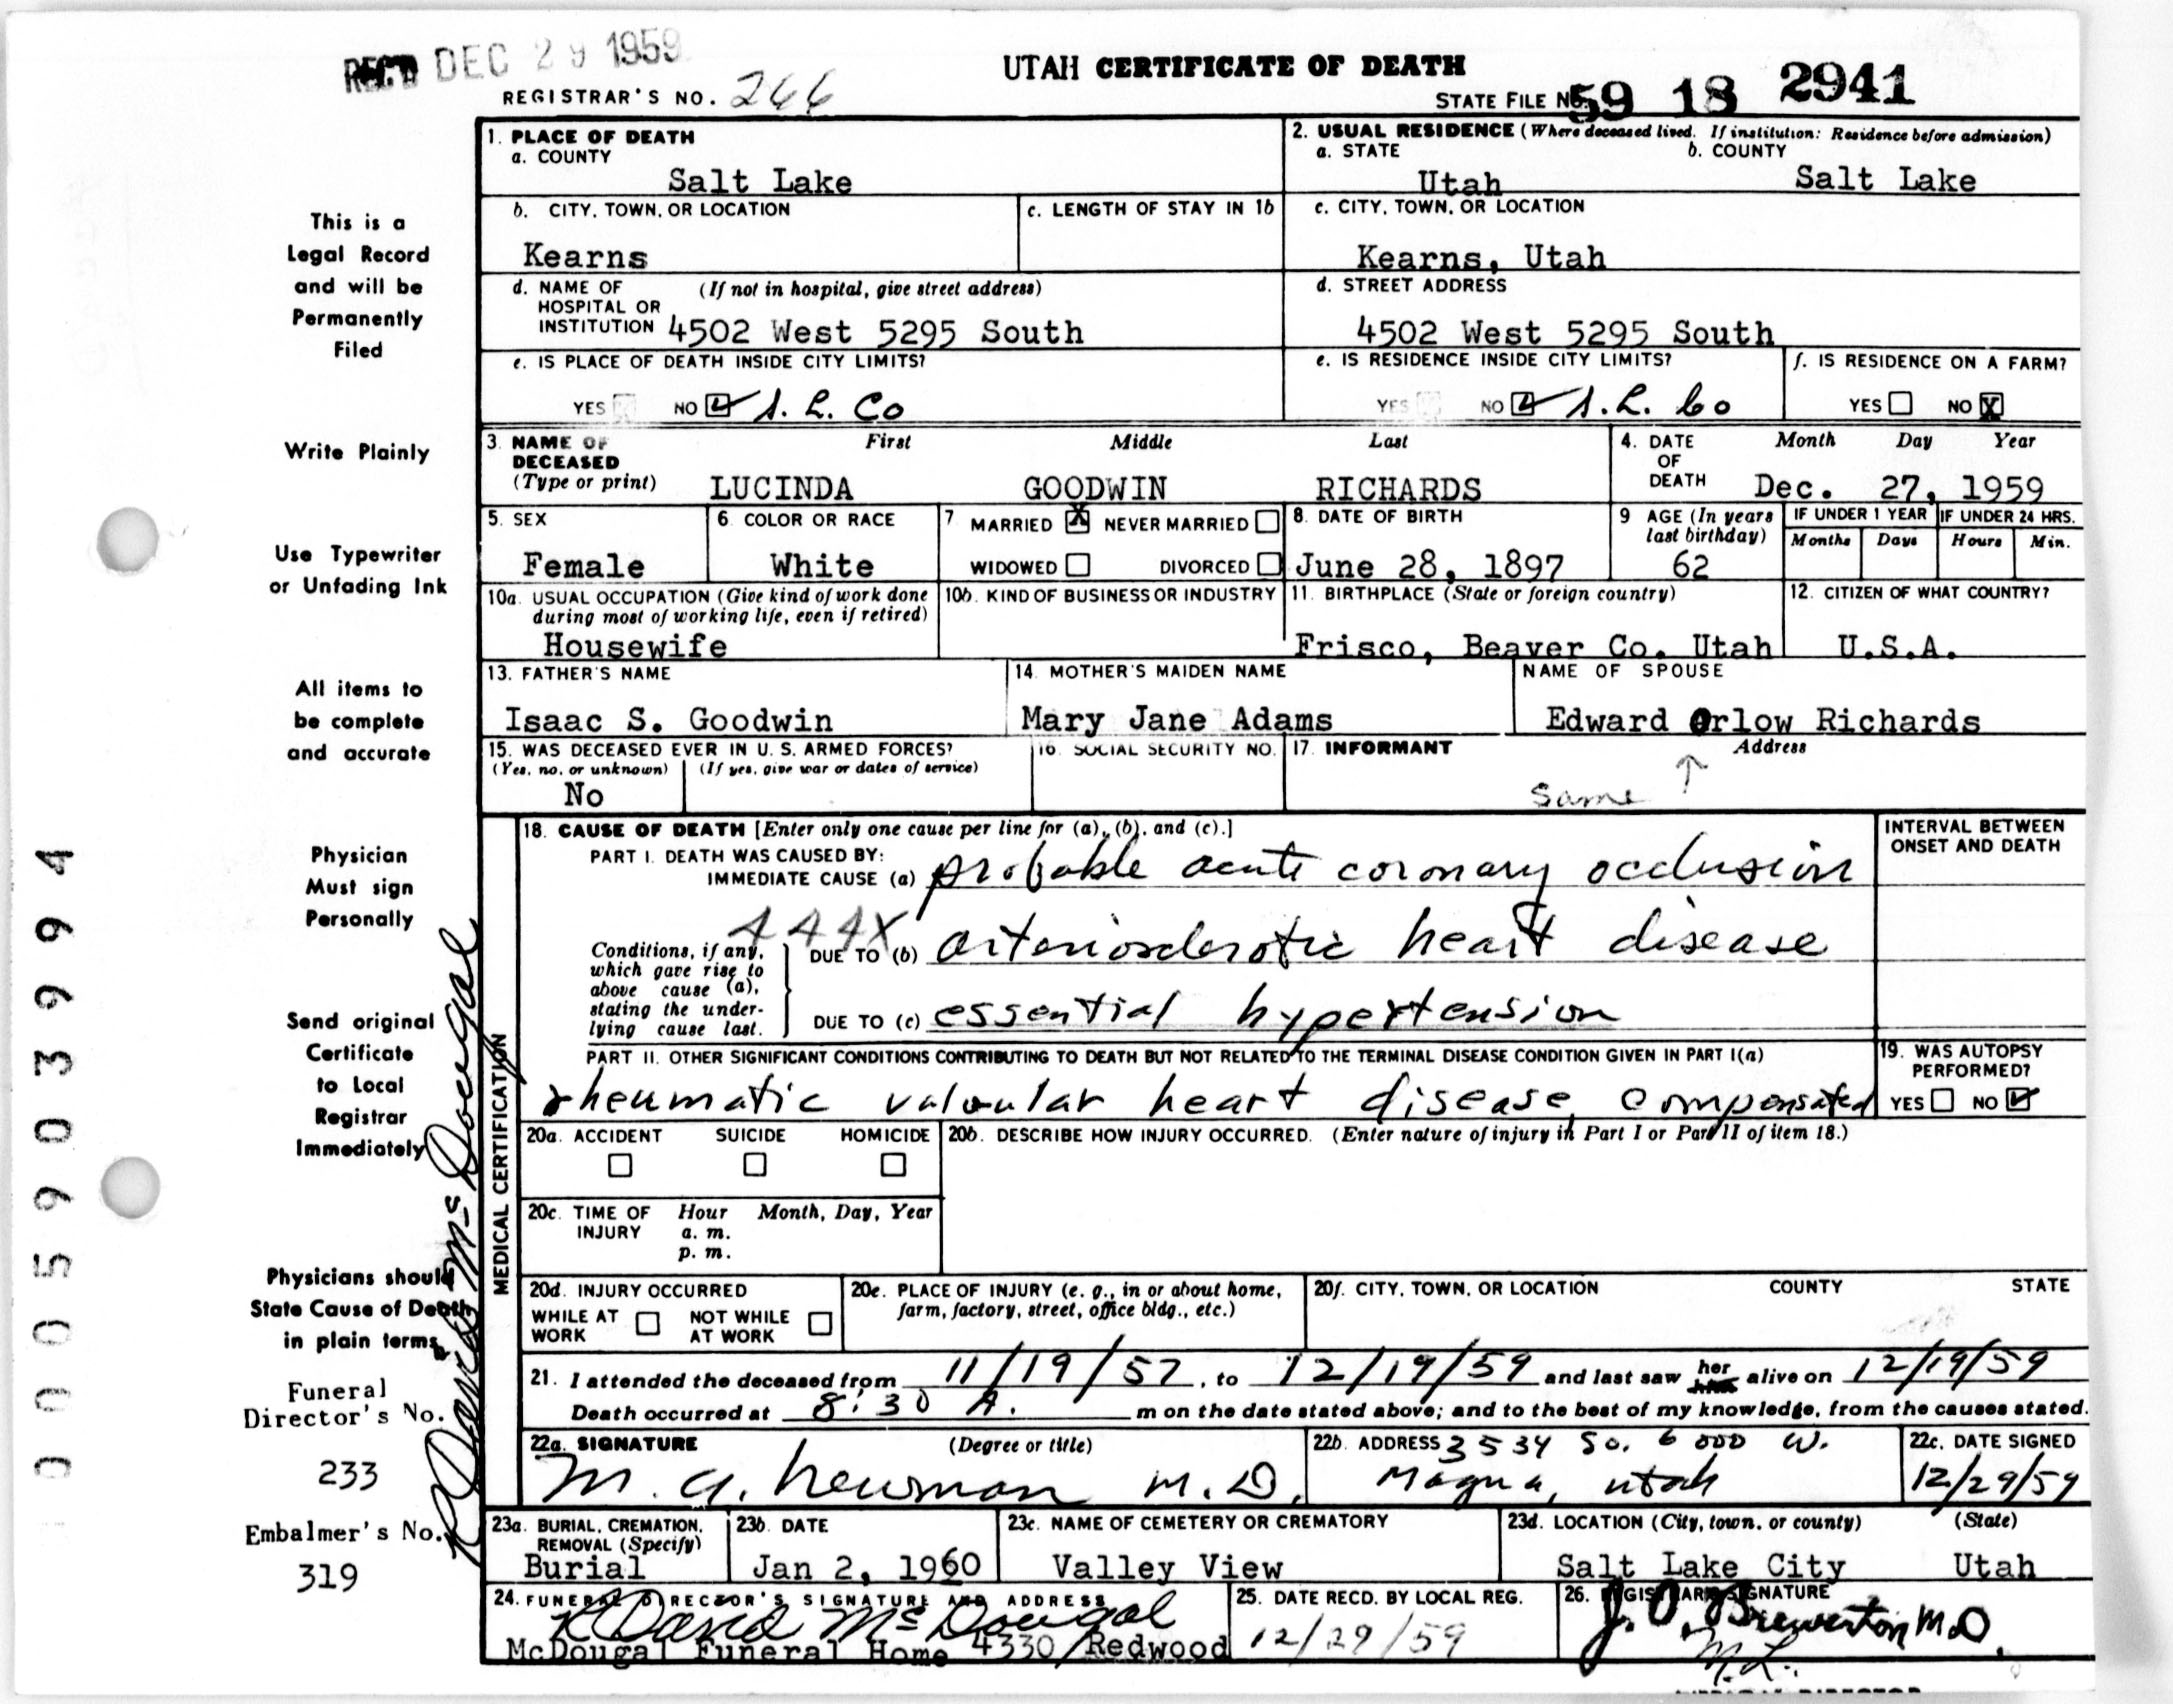 REC'D DEC 29 1959
UTAH CERTIFICATE OF DEATH
REGISTRAR'S NO. 266
STATE FILE NO. 59 18 2941
This is a
Legal Record
and will be
Permanently
Filed
Write Plainly
Use Typewriter
or Unfading Ink
All items to
be complete
and accurate
Physician
Must sign
Personally
Send original
Certificate
to Local
Registrar
Immediately
Physicians should
State Cause of Death
in plain terms
Funeral
Director's No.
233
Embalmer's No.
319
R David McDougal
0005903994
1. PLACE OF DEATH
a. COUNTY
Salt Lake
2. USUAL RESIDENCE (Where deceased lived. If institution: Residence before admission)
a. STATE b. COUNTY
Utah Salt Lake
b. CITY, TOWN, OR LOCATION
Kearns
c. LENGTH OF STAY IN 1b
c. CITY, TOWN, OR LOCATION
Kearns, Utah
d. NAME OF (If not in hospital, give street address)
HOSPITAL OR
INSTITUTION 4502 West 5295 South
d. STREET ADDRESS
4502 West 5295 South
e. IS PLACE OF DEATH INSIDE CITY LIMITS?
YES NO S. L. Co
e. IS RESIDENCE INSIDE CITY LIMITS?
YES NO S. L. Co
f. IS RESIDENCE ON A FARM?
YES NO X
3. NAME OF First Middle Last
DECEASED
(Type or print) LUCINDA GOODWIN RICHARDS
4. DATE Month Day Year
OF
DEATH Dec. 27, 1959
5. SEX
Female
6. COLOR OR RACE
White
7. MARRIED X NEVER MARRIED
WIDOWED DIVORCED
8. DATE OF BIRTH
June 28, 1897
9 AGE (In years
last birthday)
62
IF UNDER 1 YEAR IF UNDER 24 HRS.
Months Days Hours Min.
10a. USUAL OCCUPATION (Give kind of work done
during most of working life, even if retired)
Housewife
10b. KIND OF BUSINESS OR INDUSTRY
11. BIRTHPLACE (State or foreign country)
Frisco, Beaver Co. Utah
12. CITIZEN OF WHAT COUNTRY?
U.S.A.
13. FATHER'S NAME
Isaac S. Goodwin
14. MOTHER'S MAIDEN NAME
Mary Jane Adams
NAME OF SPOUSE
Edward Orlow Richards
15. WAS DECEASED EVER IN U. S. ARMED FORCES?
(Yes, no, or unknown) (If yes, give war or dates of service)
No
16. SOCIAL SECURITY NO.
17. INFORMANT Address
Same ↑
MEDICAL CERTIFICATION
18. CAUSE OF DEATH [Enter only one cause per line for (a), (b), and (c).]
PART I. DEATH WAS CAUSED BY:
IMMEDIATE CAUSE (a) probable acute coronary occlusion
444X
Conditions, if any,
which gave rise to
above cause (a),
stating the under-
lying cause last.
DUE TO (b) arteriosclerotic heart disease
DUE TO (c) essential hypertension
INTERVAL BETWEEN
ONSET AND DEATH
PART II. OTHER SIGNIFICANT CONDITIONS CONTRIBUTING TO DEATH BUT NOT RELATED TO THE TERMINAL DISEASE CONDITION GIVEN IN PART I(a)
rheumatic valvular heart disease, compensated
19. WAS AUTOPSY
PERFORMED?
YES NO
20a. ACCIDENT SUICIDE HOMICIDE
20b. DESCRIBE HOW INJURY OCCURRED. (Enter nature of injury in Part I or Part II of item 18.)
20c. TIME OF Hour Month, Day, Year
INJURY a. m.
p. m.
20d. INJURY OCCURRED
WHILE AT NOT WHILE
WORK AT WORK
20e. PLACE OF INJURY (e. g., in or about home,
farm, factory, street, office bldg., etc.)
20f. CITY, TOWN, OR LOCATION COUNTY STATE
21. I attended the deceased from 11/19/57, to 12/19/59 and last saw her alive on 12/19/59
Death occurred at 8:30 A. m on the date stated above; and to the best of my knowledge, from the causes stated.
22a. SIGNATURE (Degree or title)
M. A. Newman M. D.
22b. ADDRESS 3534 So. 6000 W.
Magna, Utah
22c. DATE SIGNED
12/29/59
23a. BURIAL, CREMATION,
REMOVAL (Specify)
Burial
23b. DATE
Jan 2, 1960
23c. NAME OF CEMETERY OR CREMATORY
Valley View
23d. LOCATION (City, town, or county) (State)
Salt Lake City Utah
24. FUNERAL DIRECTOR'S SIGNATURE AND ADDRESS
R David McDougal
McDougal Funeral Home 4330 Redwood
25. DATE RECD. BY LOCAL REG.
12/29/59
26. REGISTRAR'S SIGNATURE
J. O. Brewerton M.D.
M.L.